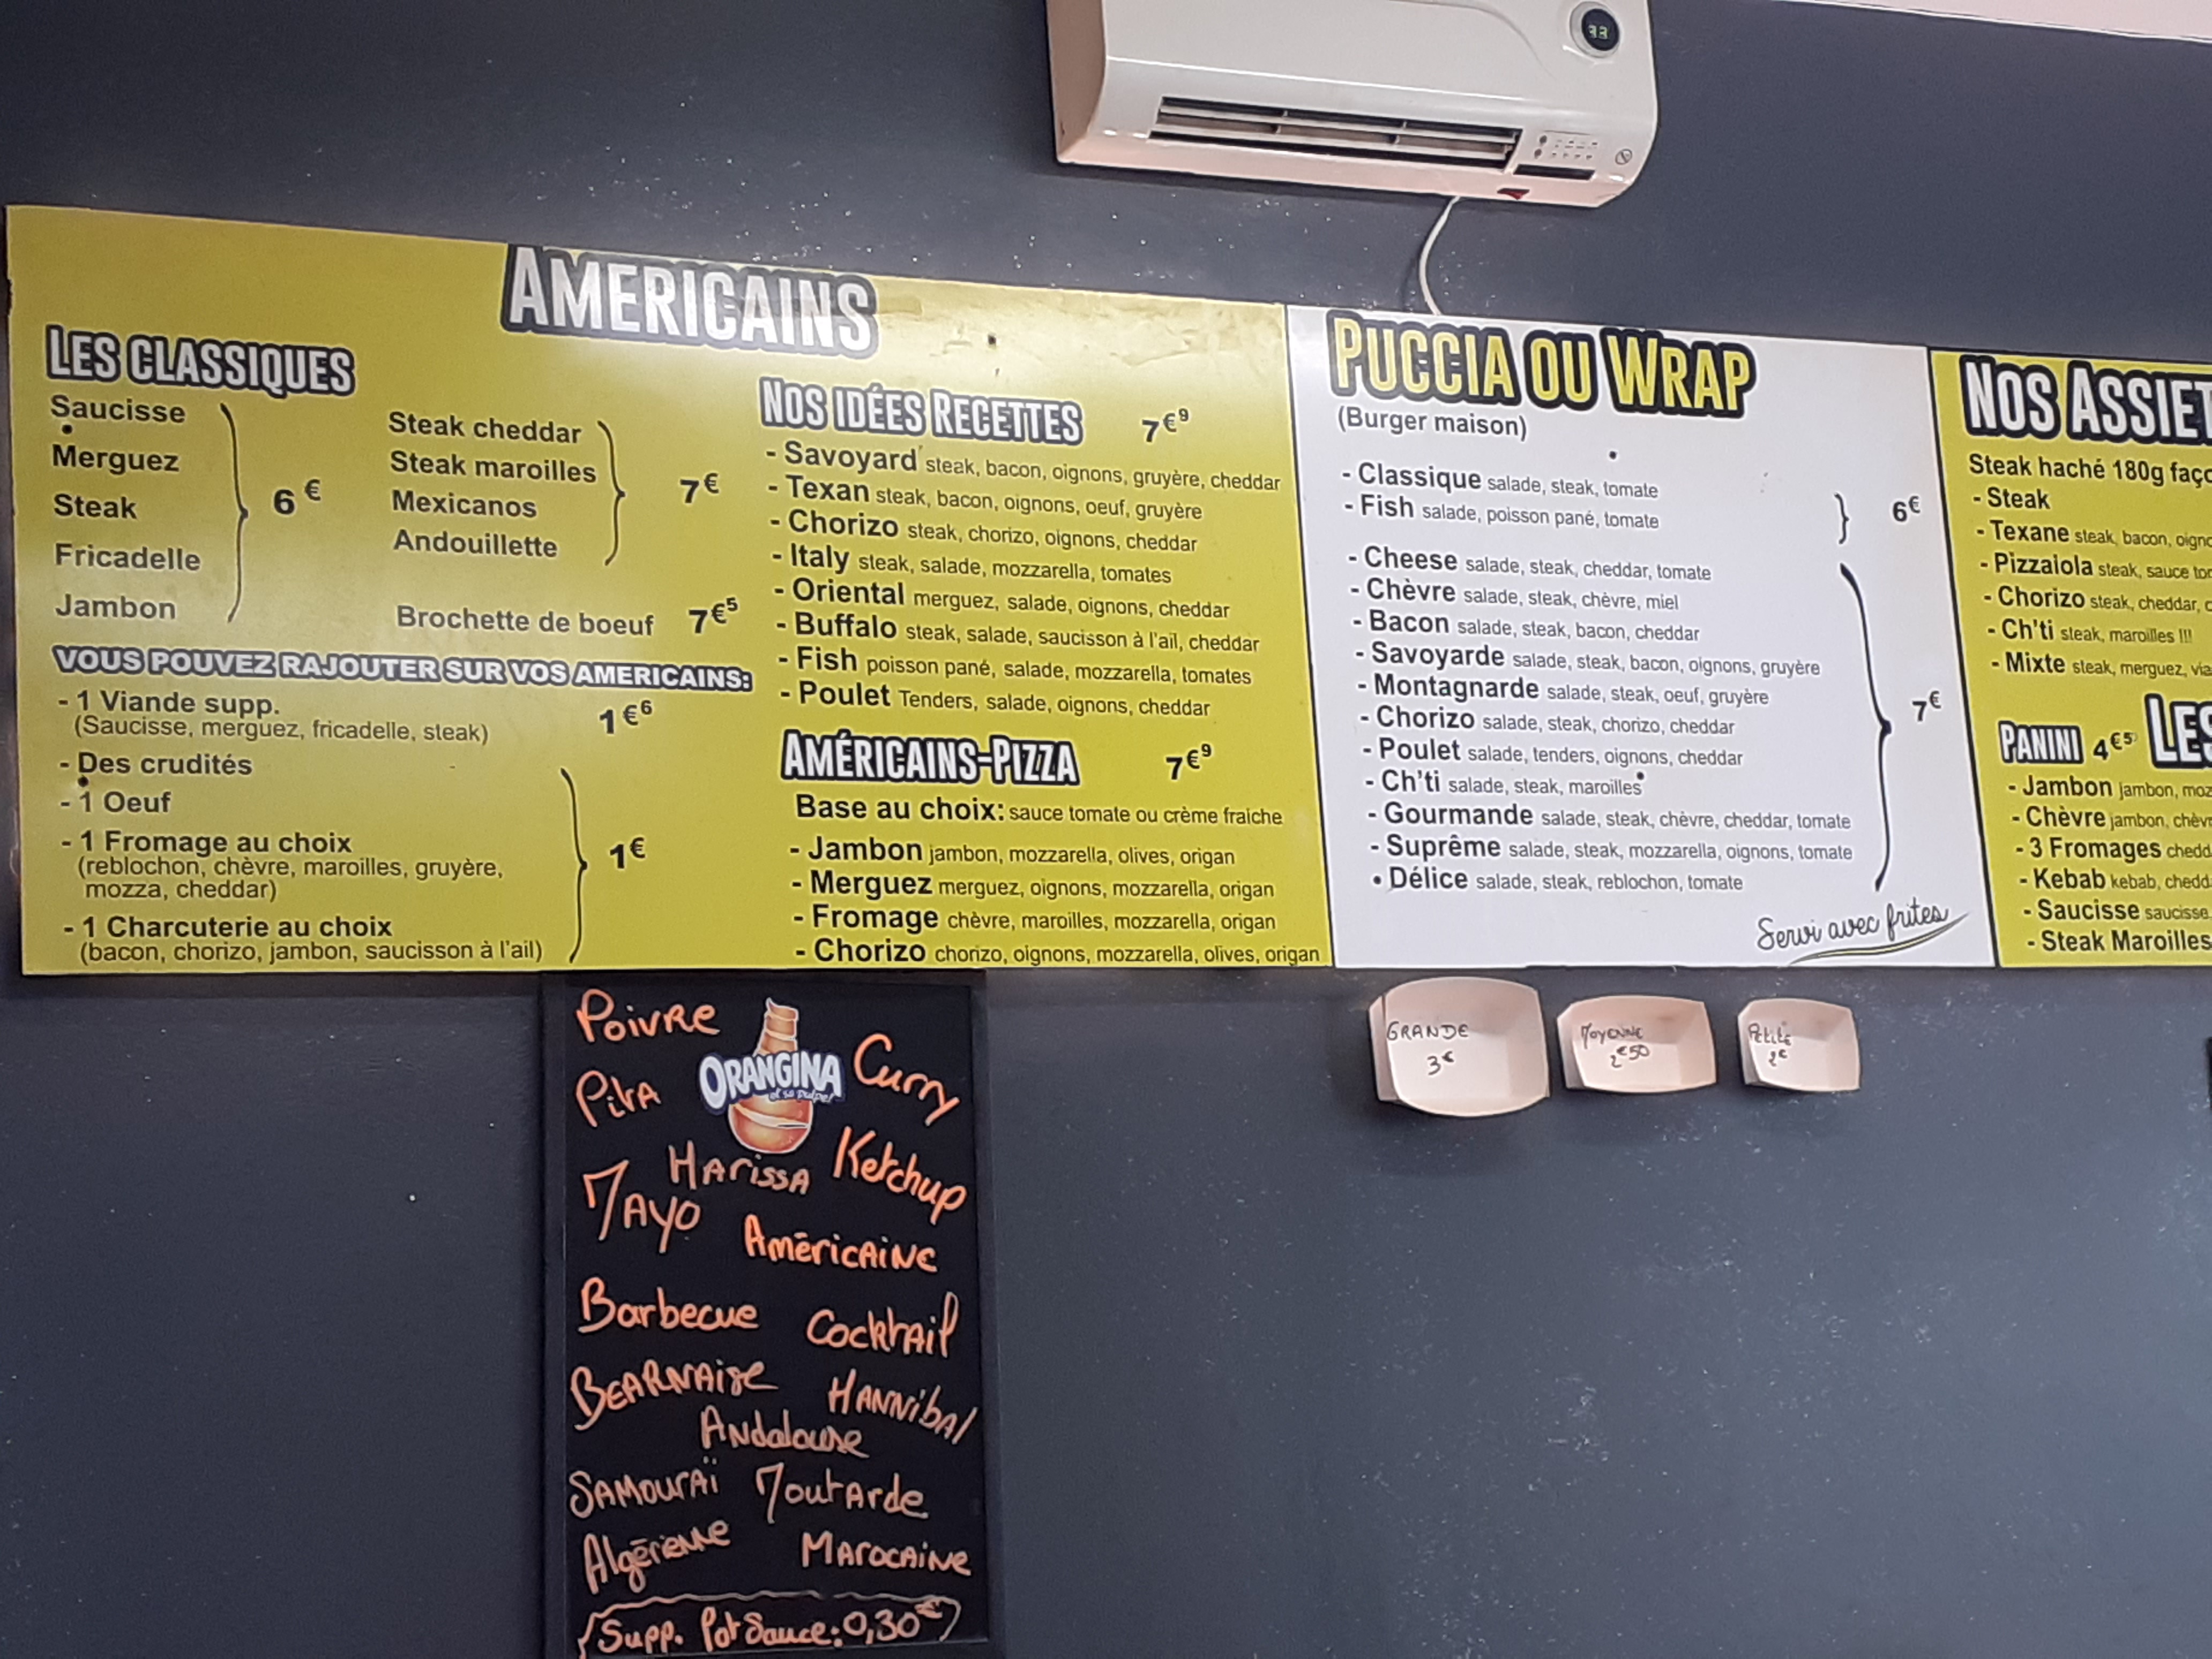 33
AMERICAINS
LES CLASSIQUES
Saucisse
Merguez
Steak
Fricadelle
Jambon
6 €
Steak cheddar
Steak maroilles
Mexicanos
Andouillette
7€
Brochette de boeuf 7€5
VOUS POUVEZ RAJOUTER SUR VOS AMERICAINS:
- 1 Viande supp.
(Saucisse, merguez, fricadelle, steak)
1€6
- Des crudités
- 1 Oeuf
- 1 Fromage au choix
(reblochon, chèvre, maroilles, gruyère,
mozza, cheddar)
- 1 Charcuterie au choix
(bacon, chorizo, jambon, saucisson à l'ail)
1€
NOS IDÉES RECETTES 7€9
- Savoyard steak, bacon, oignons, gruyère, cheddar
- Texan steak, bacon, oignons, oeuf, gruyère
- Chorizo steak, chorizo, oignons, cheddar
- Italy steak, salade, mozzarella, tomates
- Oriental merguez, salade, oignons, cheddar
- Buffalo steak, salade, saucisson à l'ail, cheddar
- Fish poisson pané, salade, mozzarella, tomates
- Poulet Tenders, salade, oignons, cheddar
AMÉRICAINS-PIZZA 7€9
Base au choix: sauce tomate ou crème fraiche
- Jambon jambon, mozzarella, olives, origan
- Merguez merguez, oignons, mozzarella, origan
- Fromage chèvre, maroilles, mozzarella, origan
- Chorizo chorizo, oignons, mozzarella, olives, origan
PUCCIA OU WRAP
(Burger maison)
- Classique salade, steak, tomate
- Fish salade, poisson pané, tomate
6€
- Cheese salade, steak, cheddar, tomate
- Chèvre salade, steak, chèvre, miel
- Bacon salade, steak, bacon, cheddar
- Savoyarde salade, steak, bacon, oignons, gruyère
- Montagnarde salade, steak, oeuf, gruyère
- Chorizo salade, steak, chorizo, cheddar
- Poulet salade, tenders, oignons, cheddar
- Ch'ti salade, steak, maroilles
- Gourmande salade, steak, chèvre, cheddar, tomate
- Suprême salade, steak, mozzarella, oignons, tomate
• Délice salade, steak, reblochon, tomate
7€
Servi avec frites
NOS ASSIET
Steak haché 180g faço
- Steak
- Texane steak, bacon, oigno
- Pizzaiola steak, sauce tom
- Chorizo steak, cheddar,
- Ch'ti steak, maroilles !!!
- Mixte steak, merguez, via
PANINI 4€5 LES
- Jambon jambon, moz
- Chèvre jambon, chèvr
- 3 Fromages chedd
- Kebab kebab, chedd
- Saucisse saucisse,
- Steak Maroilles
GRANDE
3€
MOYENNE
2€50
Petite
2€
Poivre
ORANGINA
et sa pulpe!
Curry
Pita
Harissa
Ketchup
Mayo
Américaine
Barbecue
Cocktail
Bearnaise
Hannibal
Andalouse
Samouraï
Moutarde
Algérienne
Marocaine
Supp. Pot Sauce: 0,30€